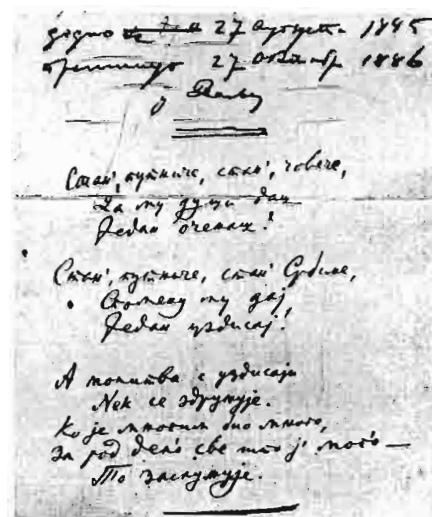 27 августа 1885
преминуо 27 октобр 1886
у
Стан', путниче, стан', човече,
Да му души даш
Један оченаш!
Стан', путниче, стан' Србине,
Спомену му дај,
Један уздисај!
А молитва с уздисаји
Нек се здружује.
Ко је многим био много,
За род дең'о све што ј' мог'о —
То заслужује.